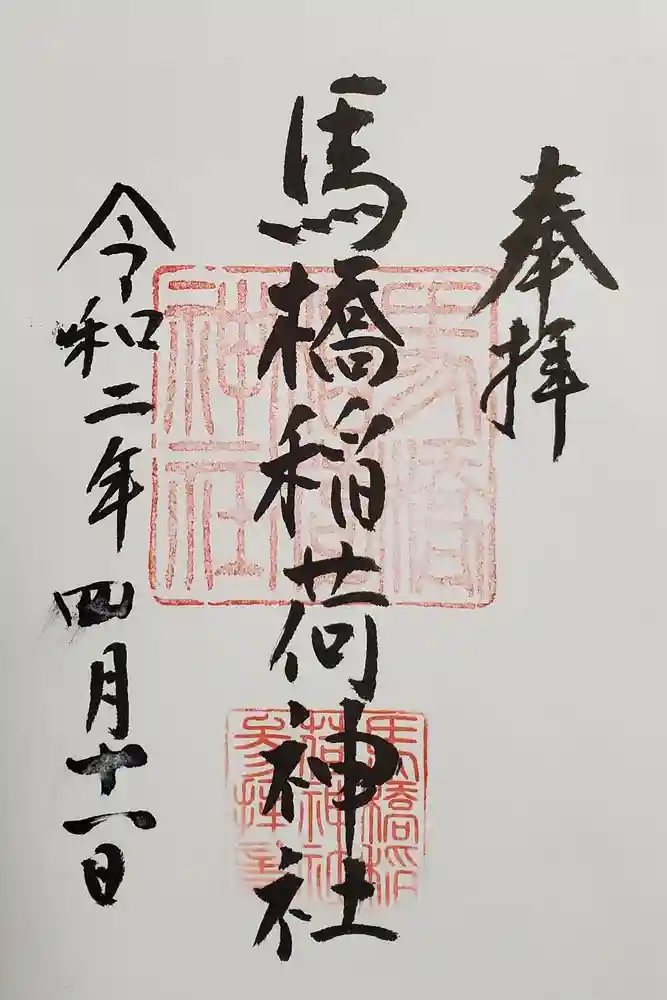 奉拝
馬橋稲荷神社
令和二年四月十一日
馬橋稲荷神社
馬橋稲荷神社参拝